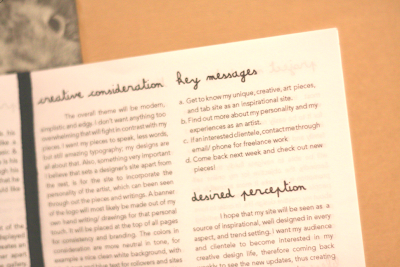 creative consideration
The overall theme will be modern,
simplistic and edgy. I don't want anything too
overwhelming that will fight in contrast with my
pieces. I want my pieces to speak, less words,
but still amazing typography; my designs are
all about that. Also, something very important
I believe that sets a designer's site apart from
the rest, is for the site to incorporate the
personality of the artist, which can been seen
through out the pieces and writings. A banner
of the logo will most likely be made out of my
own hand writing/ drawings for that personal
touch. It will be placed at the top of all pages
for consistency and branding. The colors in
consideration are more neutral in tone, for
example a nice clean white background, with
text for followers and sites
key messages
a. Get to know my unique, creative, art pieces,
and tab site as an inspirational site.
b. Find out more about my personality and my
experiences as an artist.
c. If an interested clientele, contact me through
email/ phone for freelance work
d. Come back next week and check out new
pieces!
desired perception
I hope that my site will be seen as a
source of inspirational, well designed in every
aspect, and trend setting. I want my audience
and clientele to become interested in my
creative design life, therefore coming back
to see the new updates, thus creating